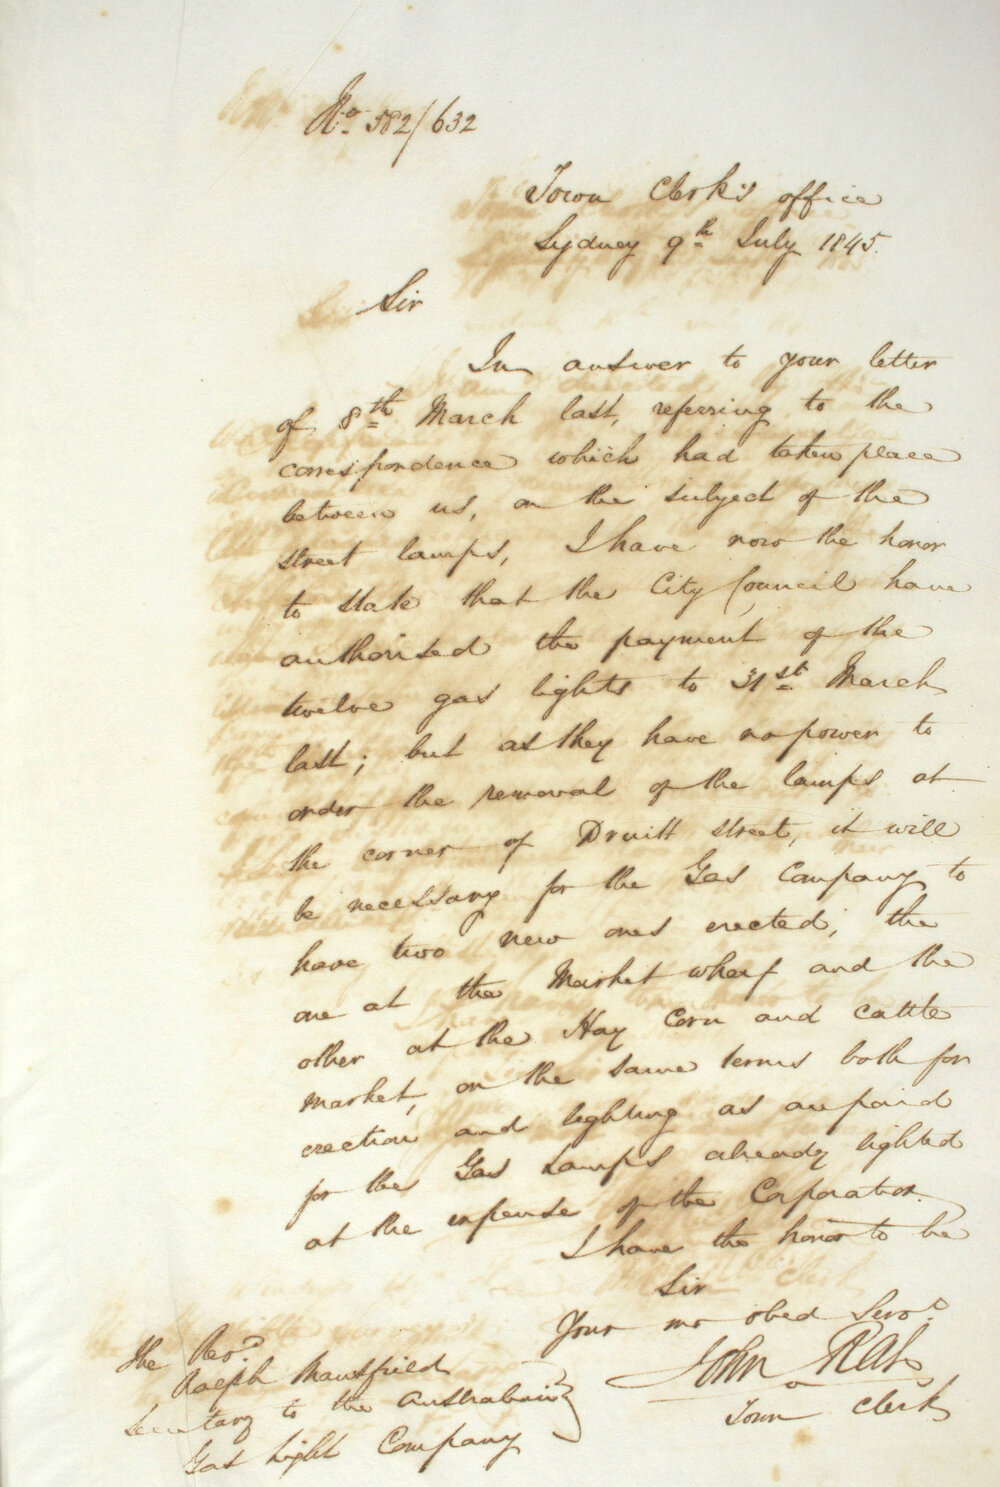 No. 582/632
Town Clerk's office
Sydney 9th July 1845.
Sir
In answer to your letter
of 8th March last, referring to the
correspondence which had taken place
between us, on the subject of the
street lamps, I have now the honor
to state that the City Council have
authorised the payment of the
twelve gas lights to 31st March
last; but as they have no power to
order the removal of the lamps at
the corner of Druitt street, it will
be necessary for the Gas Company to
have two new ones erected; the
one at the Market wharf and the
other at the Hay Corn and cattle
market, on the same terms both for
erection and lighting as are paid
for the Gas Lamps already lighted
at the expense of the Corporation.
I have the honor to be
Sir
Your mo obed Servt.
John Rae
Town Clerk
The Revd.
Ralph Mansfield
Secretary to the Australian
Gas Light Company